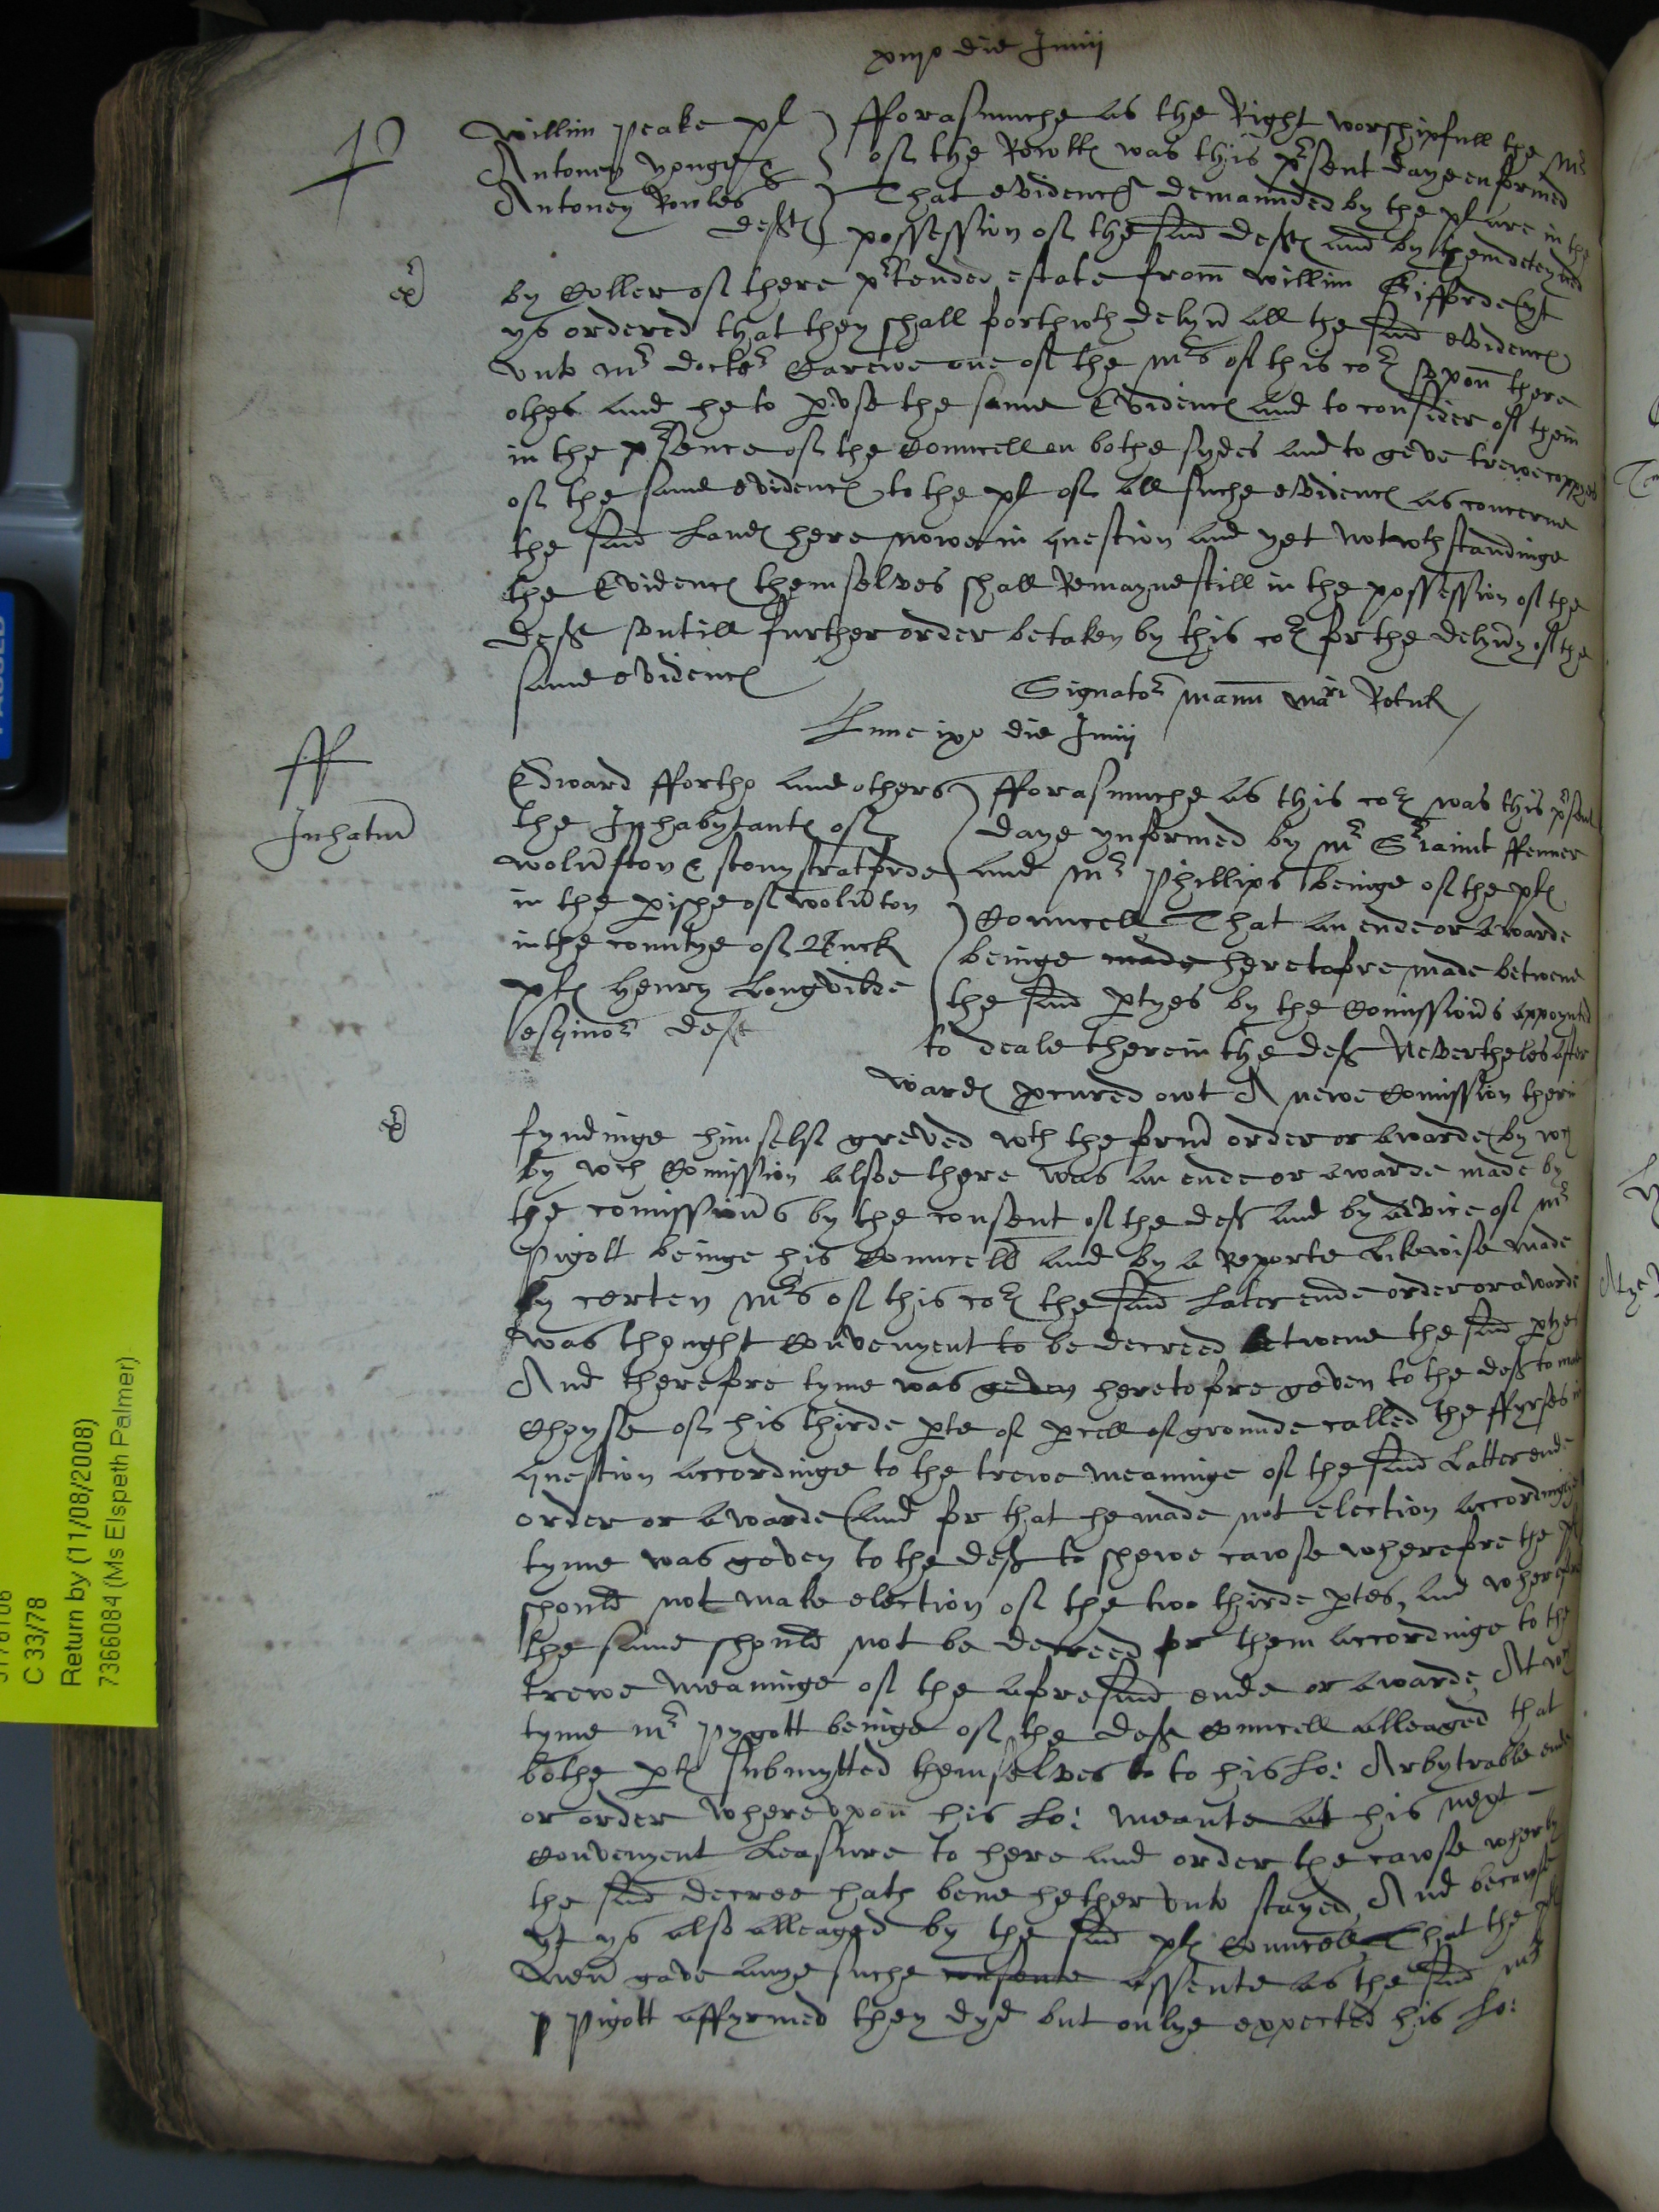 xviijo die Junij
P
Willim Peake pl
Antoney Yonge &
Antoney Rowles
deftes
fforasmuche as the Right worshipfull the Mr
of the Rowlles was this pr̃sent daye enformed
That evidences demaunded by the pl are in the
possession of the said deftes and by them deteyned
ex
by Coller of there pr̃tended estate from Willim Gifforde yt
ys ordered that they shall forthwth delyũ all the said evidences
unto Mr doctor Carewe one of the Mrs of this cor uppon there
othes and he to puse the same Evidences and to consider of them
in the pr̃sence of the Councell on bothe sydes and to geve trewe coppyes
of the same evidences to the pl of all suche evidences as concerne
the said Landes here nowe in question and yet notwthstandinge
the Evidences themselves shall Remayne still in the possession of the
deft untill further order be taken by this cor for the delyũy of the
same evidences
Signator manu mãri Rotul
Lune ixo die Junij
ff
Inhatiũ
Edward fforthe and others
the Inhabytantes of
Wolũston & Stonystratforde
in the pishe of Wolũton
in the countye of Buck
ples Henry Longvilde
esquior deft
fforasmuche as this cor was this pr̃sent
daye ynformed by Mr Sr̃iaunt ffenner
and Mr Phillips beinge of the ples
Councell That an ende or awarde
beinge made heretofore made betwene
the said ptyes by the Comissioũs appoynted
to deale therein the deft Neverthelesse after
wardes pcured owt A newe Comission therin
ex
fyndinge himself greved wth the formũ order or awarde by wch
by wch Comission alsoe there was an ende or awarde made by
the comissioũs by the consent of the deft and by advice of Mr
Pigott beinge his Councell and by a Reporte likewise made
by certen Mrs of this cor the said later ende order or awarde
was thought Convenyent to be decreed betwene the said ptyes
And therefore tyme was geven heretofore geven to the deft to make
Choyse of his thirde pte of pcell of grounde called the ffyrses in
question accordinge to the trewe meaninge of the said Latter ende
order or awarde And for that he made not election accordingly
tyme was geven to the deft to shewe cawse wherefore the pl
should not make election of the two thirde ptes, and wherefore
the same should not be decreed for them accordinge to the
trewe meaninge of the aforesaid ende or awarde, At wch
tyme Mr Pygott beinge of the deft Councell alleaged that
bothe ptes submytted themselves to to his Lo: Arbytrable ende
or order whereuppon his Lo: meante at his next
Convenyent Leasure to here and order the cawse wherby
the said decree hath bene hetherunto stayed, And becawse
yt ys also alleaged by the said ples Councell That the ples
Neũ gave anye suche consente assente as the said Mr
P Pigott affyrmed they dyd but onlye expected his Lo:
C 33/78
Return by (11/08/2008)
7366084 (Ms Elspeth Palmer)